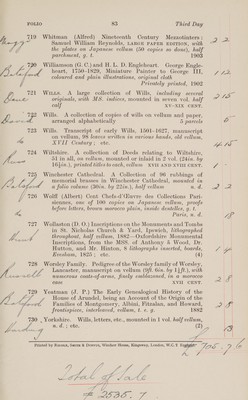 FOLIO 83 Third Day
719 Whitman (Alfred) Nineteenth Century Mezzotinters: Samuel William Reynolds, LARGE PAPER EDITION, with
the plates on Japanese vellum (50 copies so done), half
parchment, g. t. 1903
720 Williamson (G. C.) and H. L. D. Engleheart. George Engle-
heart, 1750-1829, Miniature Painter to George III,
coloured and plain illustrations, original cloth
Privately printed, 1902
721 WILLS. A large collection of Wills, including several
originals, with MS. indices, mounted in seven vol. half
calf XV-XIX CENT.
722 Wills. A collection of copies of wills on vellum and paper,
arranged alphabetically 5 parcels
723 Wills. Transcript of early Wills, 1501-1627, manuscript
on vellum, 98 leaves written in various hands, old vellum,
XVII Century; etc.
724 Wiltshire. A collection of Deeds relating to Wiltshire,
51 in all, on vellum, mounted or inlaid in 2 vol.
printed titles to each, vellum XVII AND XVIII CENT.
725 Winchester Cathedral. A Collection of 96 rubbings of
memorial brasses in Winchester Cathedral, mounted in
a folio volume (36in. by 22in.), half vellum n. d.
726 Wolff (Albert) Cent Chefs-d'Œuvre des Collections Pari-
siennes, one of 100 copies on Japanese vellum, proofs
before letters, brown morocco plain, inside dentelles, g. t.
Paris, n. d.
727 Wollaston (D. O.) Inscriptions on the Monuments and Tombs
in St. Nicholas Church & Yard, Ipswich, lithographed
throughout, half vellum, 1882—Oxfordshire Monumental
Inscriptions, from the MSS. of Anthony à Wood, Dr.
Hutton, and Mr. Hinton, 8 lithographs inserted, boards,
Evesham, 1825; etc. (4)
728 Worsley Family. Pedigree of the Worsley family of Worsley,
Lancaster, manuscript on vellum (9ft. 6in. by 1½ft.), with
numerous coats-of-arms, finely emblazoned, in a morocco
case XVII CENT.
729 Yeatman (J. P.) The Early Genealogical History of the
House of Arundel, being an Account of the Origin of the
Families of Montgomery, Albini, Fitzalan, and Howard,
frontispiece, interleaved, vellum, t. e. g. 1882
730 Yorkshire. Wills, letters, etc., mounted in 1 vol. half vellum,
n. d.; etc. (2)
Printed by Riddle, Smith & Duffus
Total of Sale
£ 2535.7